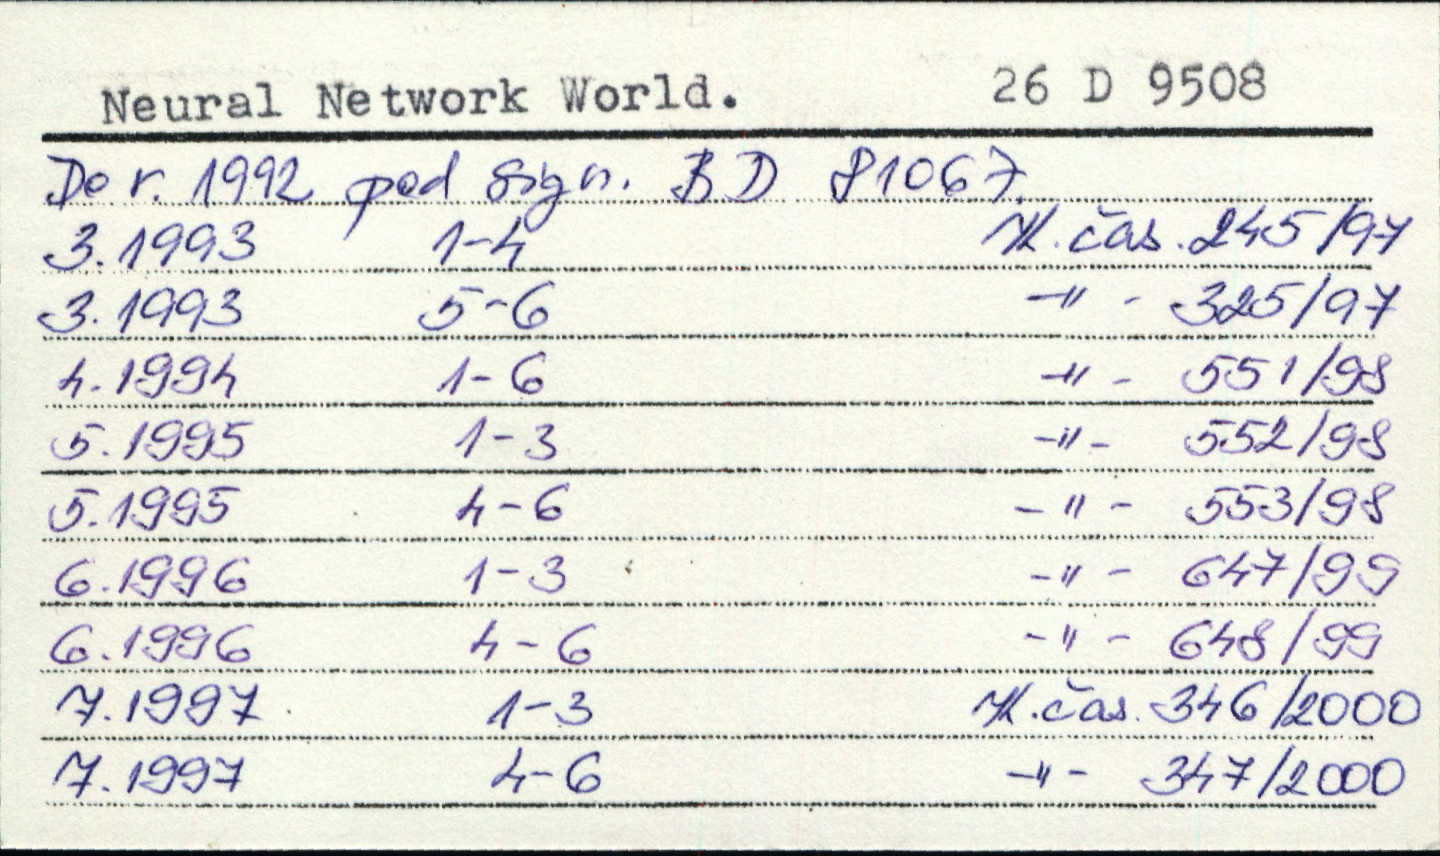 Neural Network World. 26 D 9508
Do r. 1992 pod sign. BD 81067.
3.1993 1-4 K. čas. 245/97
3.1993 5-6 -"- 325/97
4.1994 1-6 -"- 551/98
5.1995 1-3 -"- 552/98
5.1995 4-6 -"- 553/98
6.1996 1-3 -"- 647/99
6.1996 4-6 -"- 648/99
7.1997 1-3 K. čas. 346/2000
7.1997 4-6 -"- 347/2000